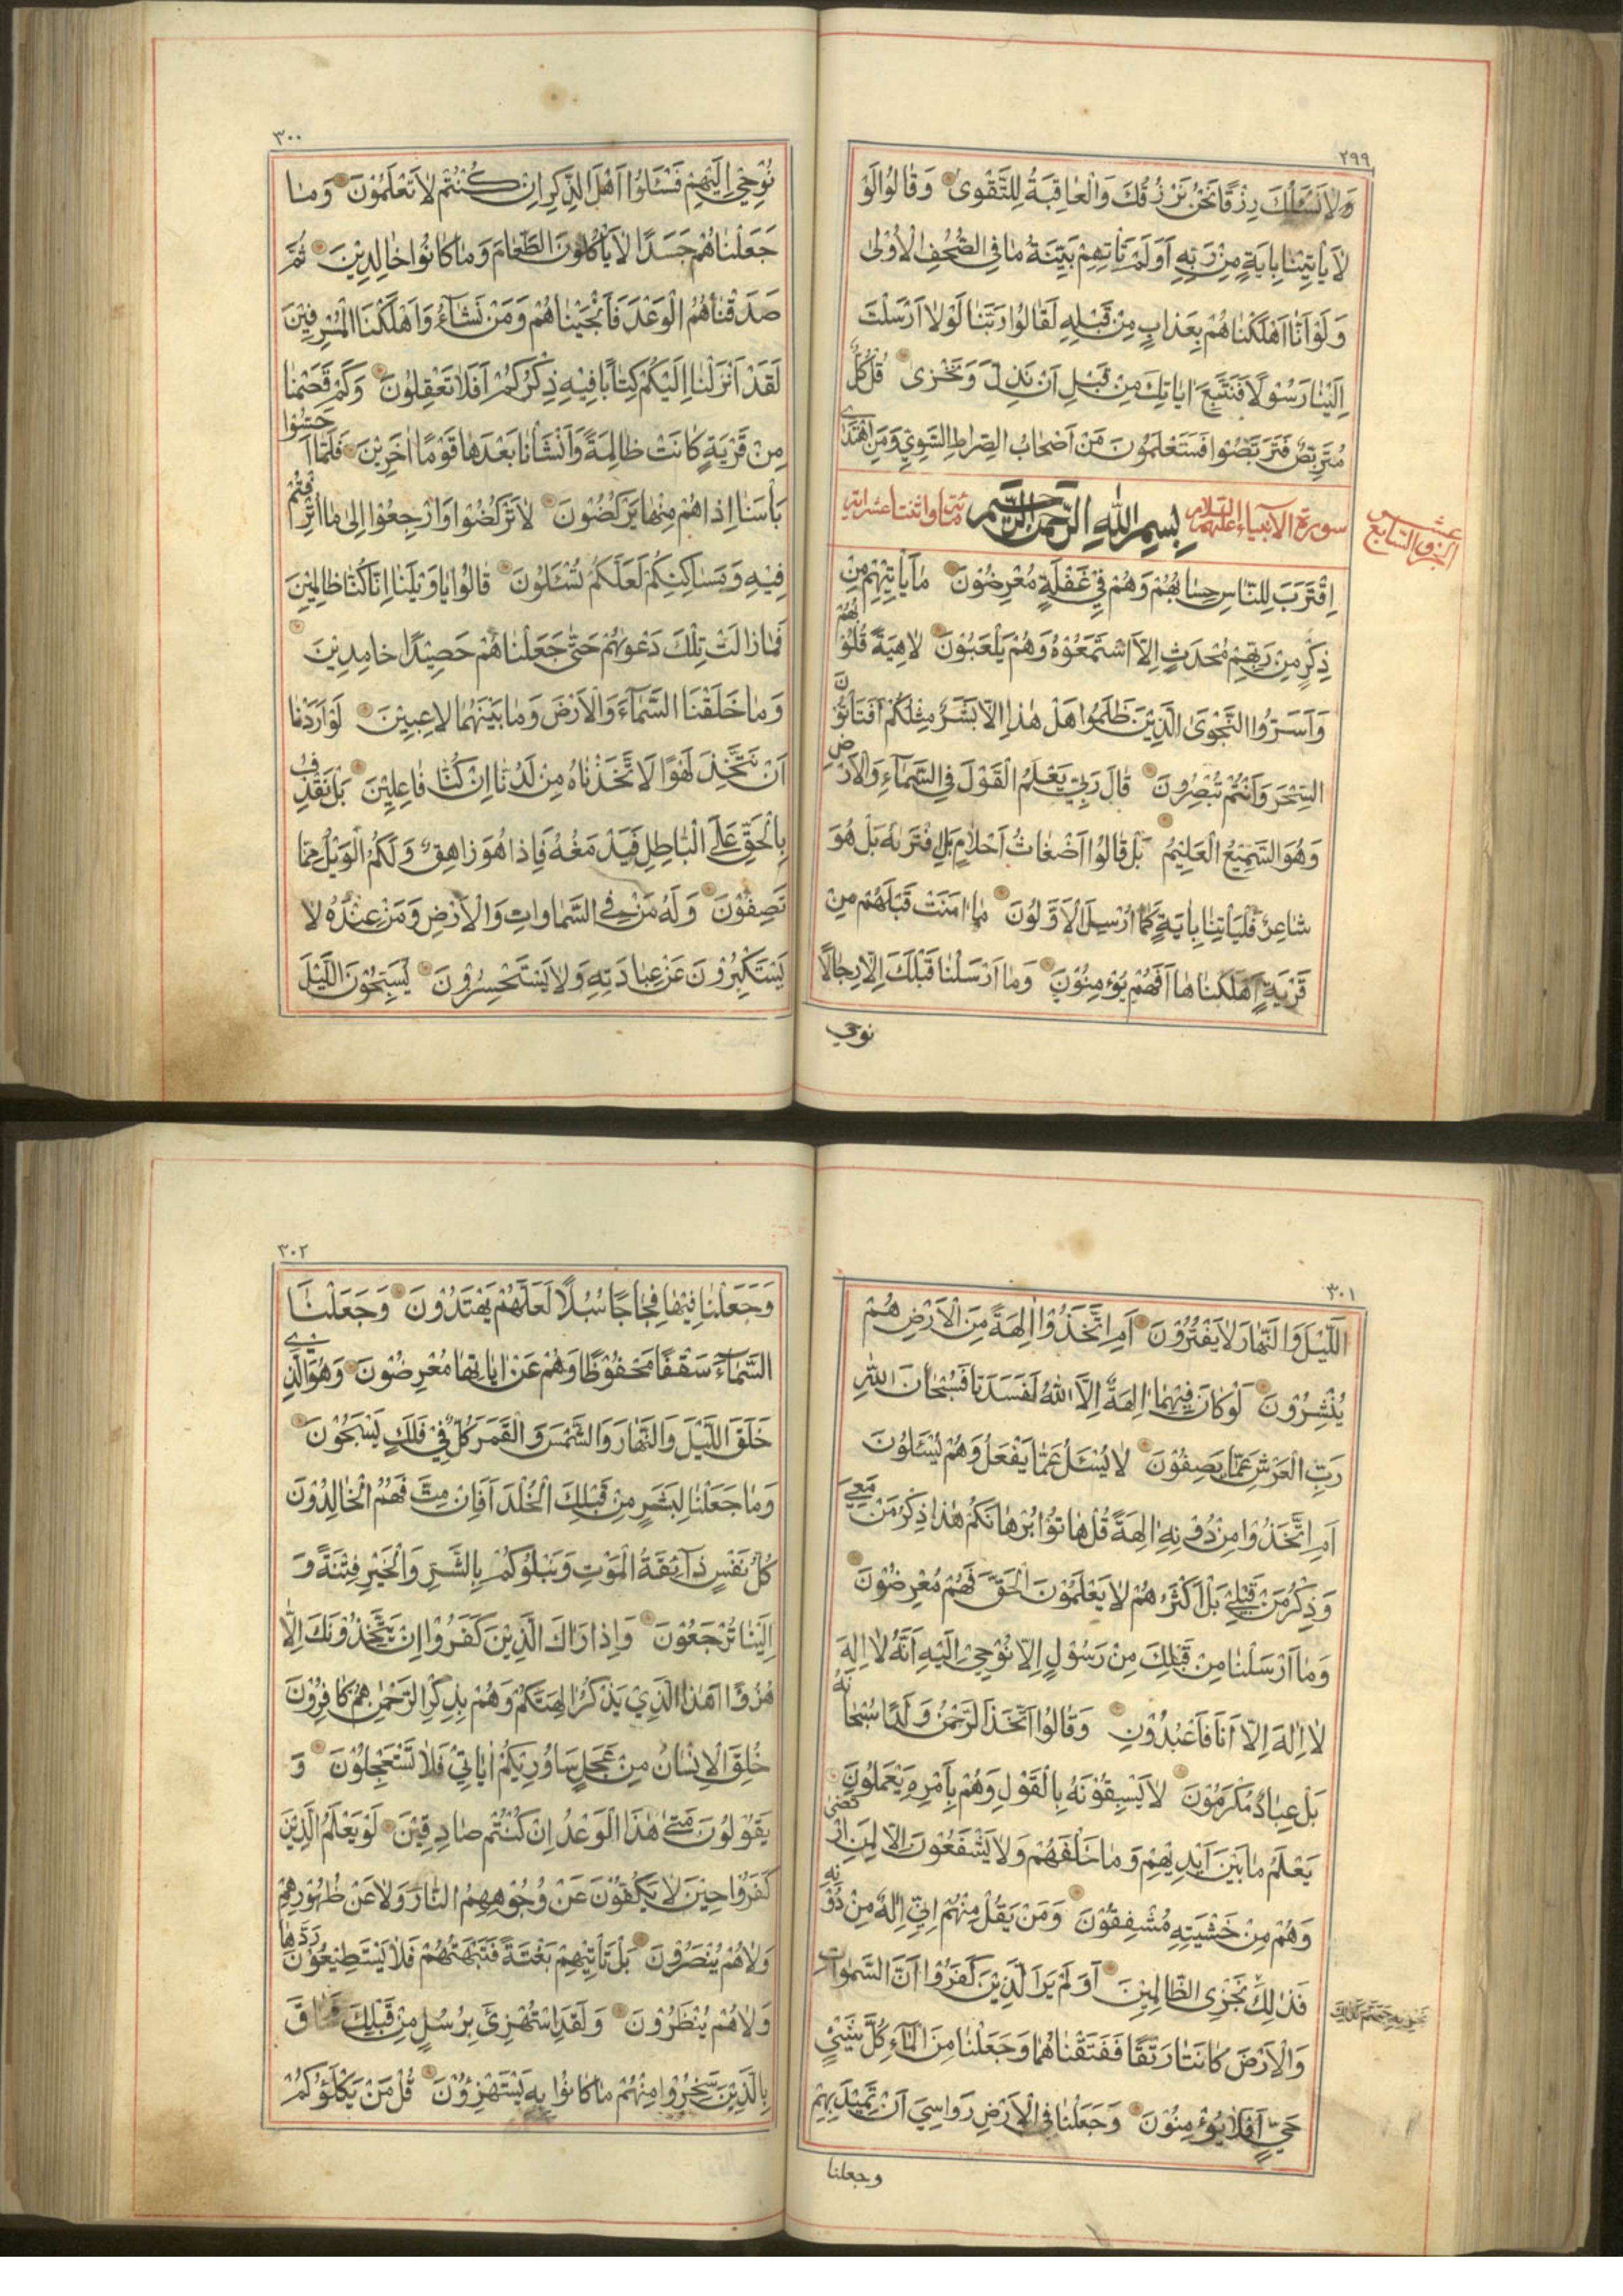 ٢٩٩
وَلَا نَسْئَلُكَ رِزْقًا نَحْنُ نَرْزُقُكَ وَالْعَاقِبَةُ لِلتَّقْوٰى وَقَالُوا لَوْ
لَا يَأْتِيْنَا بِاٰيَةٍ مِنْ رَبِّهِ اَوَلَمْ تَأْتِهِمْ بَيِّنَةُ مَا فِي الصُّحُفِ الْاُوْلٰى
وَلَوْ اَنَّا اَهْلَكْنَاهُمْ بِعَذَابٍ مِنْ قَبْلِهِ لَقَالُوا رَبَّنَا لَوْلَا اَرْسَلْتَ
اِلَيْنَا رَسُوْلًا فَنَتَّبِعَ اٰيَاتِكَ مِنْ قَبْلِ اَنْ نَذِلَّ وَنَخْزٰى قُلْ كُلٌّ
مُتَرَبِّصٌ فَتَرَبَّصُوا فَسَتَعْلَمُونَ مَنْ اَصْحَابُ الصِّرَاطِ السَّوِيِّ وَمَنِ اهْتَدٰى
سورة الانبياء عليهم السلام بِسْمِ اللهِ الرَّحْمٰنِ الرَّحِيْمِ مئة واثنتا عشر اية
الجزو السابع عشر
اِقْتَرَبَ لِلنَّاسِ حِسَابُهُمْ وَهُمْ فِيْ غَفْلَةٍ مُعْرِضُوْنَ مَا يَأْتِيْهِمْ مِنْ
ذِكْرٍ مِنْ رَبِّهِمْ مُحْدَثٍ اِلَّا اسْتَمَعُوْهُ وَهُمْ يَلْعَبُوْنَ لَاهِيَةً قُلُوْبُهُمْ
وَاَسَرُّوا النَّجْوَى الَّذِيْنَ ظَلَمُوا هَلْ هٰذَا اِلَّا بَشَرٌ مِثْلُكُمْ اَفَتَأْتُوْنَ
السِّحْرَ وَاَنْتُمْ تُبْصِرُوْنَ قَالَ رَبِّيْ يَعْلَمُ الْقَوْلَ فِي السَّمَاءِ وَالْاَرْضِ
وَهُوَ السَّمِيْعُ الْعَلِيْمُ بَلْ قَالُوا اَضْغَاثُ اَحْلَامٍ بَلِ افْتَرٰىهُ بَلْ هُوَ
شَاعِرٌ فَلْيَأْتِنَا بِاٰيَةٍ كَمَا اُرْسِلَ الْاَوَّلُوْنَ مَا اٰمَنَتْ قَبْلَهُمْ مِنْ
قَرْيَةٍ اَهْلَكْنَاهَا اَفَهُمْ يُؤْمِنُوْنَ وَمَا اَرْسَلْنَا قَبْلَكَ اِلَّا رِجَالًا
نوحي
٣٠٠
نُوْحِيْ اِلَيْهِمْ فَسْئَلُوْا اَهْلَ الذِّكْرِ اِنْ كُنْتُمْ لَا تَعْلَمُوْنَ وَمَا
جَعَلْنَاهُمْ جَسَدًا لَا يَأْكُلُونَ الطَّعَامَ وَمَا كَانُوْا خَالِدِيْنَ ثُمَّ
صَدَقْنَاهُمُ الْوَعْدَ فَاَنْجَيْنَاهُمْ وَمَنْ نَشَاءُ وَاَهْلَكْنَا الْمُسْرِفِيْنَ
لَقَدْ اَنْزَلْنَا اِلَيْكُمْ كِتَابًا فِيْهِ ذِكْرُكُمْ اَفَلَا تَعْقِلُوْنَ وَكَمْ قَصَمْنَا
مِنْ قَرْيَةٍ كَانَتْ ظَالِمَةً وَاَنْشَأْنَا بَعْدَهَا قَوْمًا اٰخَرِيْنَ فَلَمَّا اَحَسُّوْا
بَأْسَنَا اِذَا هُمْ مِنْهَا يَرْكُضُوْنَ لَا تَرْكُضُوْا وَارْجِعُوْا اِلٰى مَا اُتْرِفْتُمْ
فِيْهِ وَمَسَاكِنِكُمْ لَعَلَّكُمْ تُسْئَلُوْنَ قَالُوْا يَا وَيْلَنَا اِنَّا كُنَّا ظَالِمِيْنَ
فَمَا زَالَتْ تِلْكَ دَعْوٰيهُمْ حَتّٰى جَعَلْنَاهُمْ حَصِيْدًا خَامِدِيْنَ
وَمَا خَلَقْنَا السَّمَاءَ وَالْاَرْضَ وَمَا بَيْنَهُمَا لَاعِبِيْنَ لَوْ اَرَدْنَا
اَنْ نَتَّخِذَ لَهْوًا لَاتَّخَذْنَاهُ مِنْ لَدُنَّا اِنْ كُنَّا فَاعِلِيْنَ بَلْ نَقْذِفُ
بِالْحَقِّ عَلَى الْبَاطِلِ فَيَدْمَغُهُ فَاِذَا هُوَ زَاهِقٌ وَلَكُمُ الْوَيْلُ مِمَّا
تَصِفُوْنَ وَلَهُ مَنْ فِي السَّمَاوَاتِ وَالْاَرْضِ وَمَنْ عِنْدَهُ لَا
يَسْتَكْبِرُوْنَ عَنْ عِبَادَتِهِ وَلَا يَسْتَحْسِرُوْنَ يُسَبِّحُوْنَ اللَّيْلَ
٣٠١
اللَّيْلَ وَالنَّهَارَ لَا يَفْتُرُوْنَ اَمِ اتَّخَذُوْا اٰلِهَةً مِنَ الْاَرْضِ هُمْ
يُنْشِرُوْنَ لَوْ كَانَ فِيْهِمَا اٰلِهَةٌ اِلَّا اللهُ لَفَسَدَتَا فَسُبْحَانَ اللهِ
رَبِّ الْعَرْشِ عَمَّا يَصِفُوْنَ لَا يُسْئَلُ عَمَّا يَفْعَلُ وَهُمْ يُسْئَلُوْنَ
اَمِ اتَّخَذُوا مِنْ دُوْنِهِ اٰلِهَةً قُلْ هَاتُوْا بُرْهَانَكُمْ هٰذَا ذِكْرُ مَنْ مَعِيَ
وَذِكْرُ مَنْ قَبْلِيْ بَلْ اَكْثَرُهُمْ لَا يَعْلَمُوْنَ الْحَقَّ فَهُمْ مُعْرِضُوْنَ
وَمَا اَرْسَلْنَا مِنْ قَبْلِكَ مِنْ رَسُوْلٍ اِلَّا نُوْحِيْ اِلَيْهِ اَنَّهُ لَا اِلٰهَ
لَا اِلٰهَ اِلَّا اَنَا فَاعْبُدُوْنِ وَقَالُوا اتَّخَذَ الرَّحْمٰنُ وَلَدًا سُبْحَانَهُ
بَلْ عِبَادٌ مُكْرَمُوْنَ لَا يَسْبِقُوْنَهُ بِالْقَوْلِ وَهُمْ بِاَمْرِهِ يَعْمَلُوْنَ
يَعْلَمُ مَا بَيْنَ اَيْدِيْهِمْ وَمَا خَلْفَهُمْ وَلَا يَشْفَعُوْنَ اِلَّا لِمَنِ ارْتَضٰى
وَهُمْ مِنْ خَشْيَتِهِ مُشْفِقُوْنَ وَمَنْ يَقُلْ مِنْهُمْ اِنِّيْ اِلٰهٌ مِنْ دُوْنِهِ
فَذٰلِكَ نَجْزِى الظَّالِمِيْنَ اَوَلَمْ يَرَ الَّذِيْنَ كَفَرُوْا اَنَّ السَّمٰوَاتِ
نجزيه جهنم كذلك
وَالْاَرْضَ كَانَتَا رَتْقًا فَفَتَقْنَاهُمَا وَجَعَلْنَا مِنَ الْمَاءِ كُلَّ شَيْءٍ
حَيٍّ اَفَلَا يُؤْمِنُوْنَ وَجَعَلْنَا فِي الْاَرْضِ رَوَاسِيَ اَنْ تَمِيْدَ بِهِمْ
وجعلنا
٣٠٢
وَجَعَلْنَا فِيْهَا فِجَاجًا سُبُلًا لَعَلَّهُمْ يَهْتَدُوْنَ وَجَعَلْنَا
السَّمَاءَ سَقْفًا مَحْفُوْظًا وَهُمْ عَنْ اٰيَاتِهَا مُعْرِضُوْنَ وَهُوَ الَّذِيْ
خَلَقَ اللَّيْلَ وَالنَّهَارَ وَالشَّمْسَ وَالْقَمَرَ كُلٌّ فِيْ فَلَكٍ يَسْبَحُوْنَ
وَمَا جَعَلْنَا لِبَشَرٍ مِنْ قَبْلِكَ الْخُلْدَ اَفَاِنْ مِتَّ فَهُمُ الْخَالِدُوْنَ
كُلُّ نَفْسٍ ذَائِقَةُ الْمَوْتِ وَنَبْلُوْكُمْ بِالشَّرِّ وَالْخَيْرِ فِتْنَةً وَ
اِلَيْنَا تُرْجَعُوْنَ وَاِذَا رَاٰكَ الَّذِيْنَ كَفَرُوْا اِنْ يَتَّخِذُوْنَكَ اِلَّا
هُزُوًا اَهٰذَا الَّذِيْ يَذْكُرُ اٰلِهَتَكُمْ وَهُمْ بِذِكْرِ الرَّحْمٰنِ هُمْ كَافِرُوْنَ
خُلِقَ الْاِنْسَانُ مِنْ عَجَلٍ سَاُوْرِيْكُمْ اٰيَاتِيْ فَلَا تَسْتَعْجِلُوْنَ وَ
يَقُوْلُوْنَ مَتٰى هٰذَا الْوَعْدُ اِنْ كُنْتُمْ صَادِقِيْنَ لَوْ يَعْلَمُ الَّذِيْنَ
كَفَرُوْا حِيْنَ لَا يَكُفُّوْنَ عَنْ وُجُوْهِهِمُ النَّارَ وَلَا عَنْ ظُهُوْرِهِمْ
وَلَا هُمْ يُنْصَرُوْنَ بَلْ تَأْتِيْهِمْ بَغْتَةً فَتَبْهَتُهُمْ فَلَا يَسْتَطِيْعُوْنَ رَدَّهَا
وَلَا هُمْ يُنْظَرُوْنَ وَلَقَدِ اسْتُهْزِئَ بِرُسُلٍ مِنْ قَبْلِكَ فَحَاقَ
بِالَّذِيْنَ سَخِرُوْا مِنْهُمْ مَا كَانُوْا بِهِ يَسْتَهْزِؤُنَ قُلْ مَنْ يَكْلَؤُكُمْ